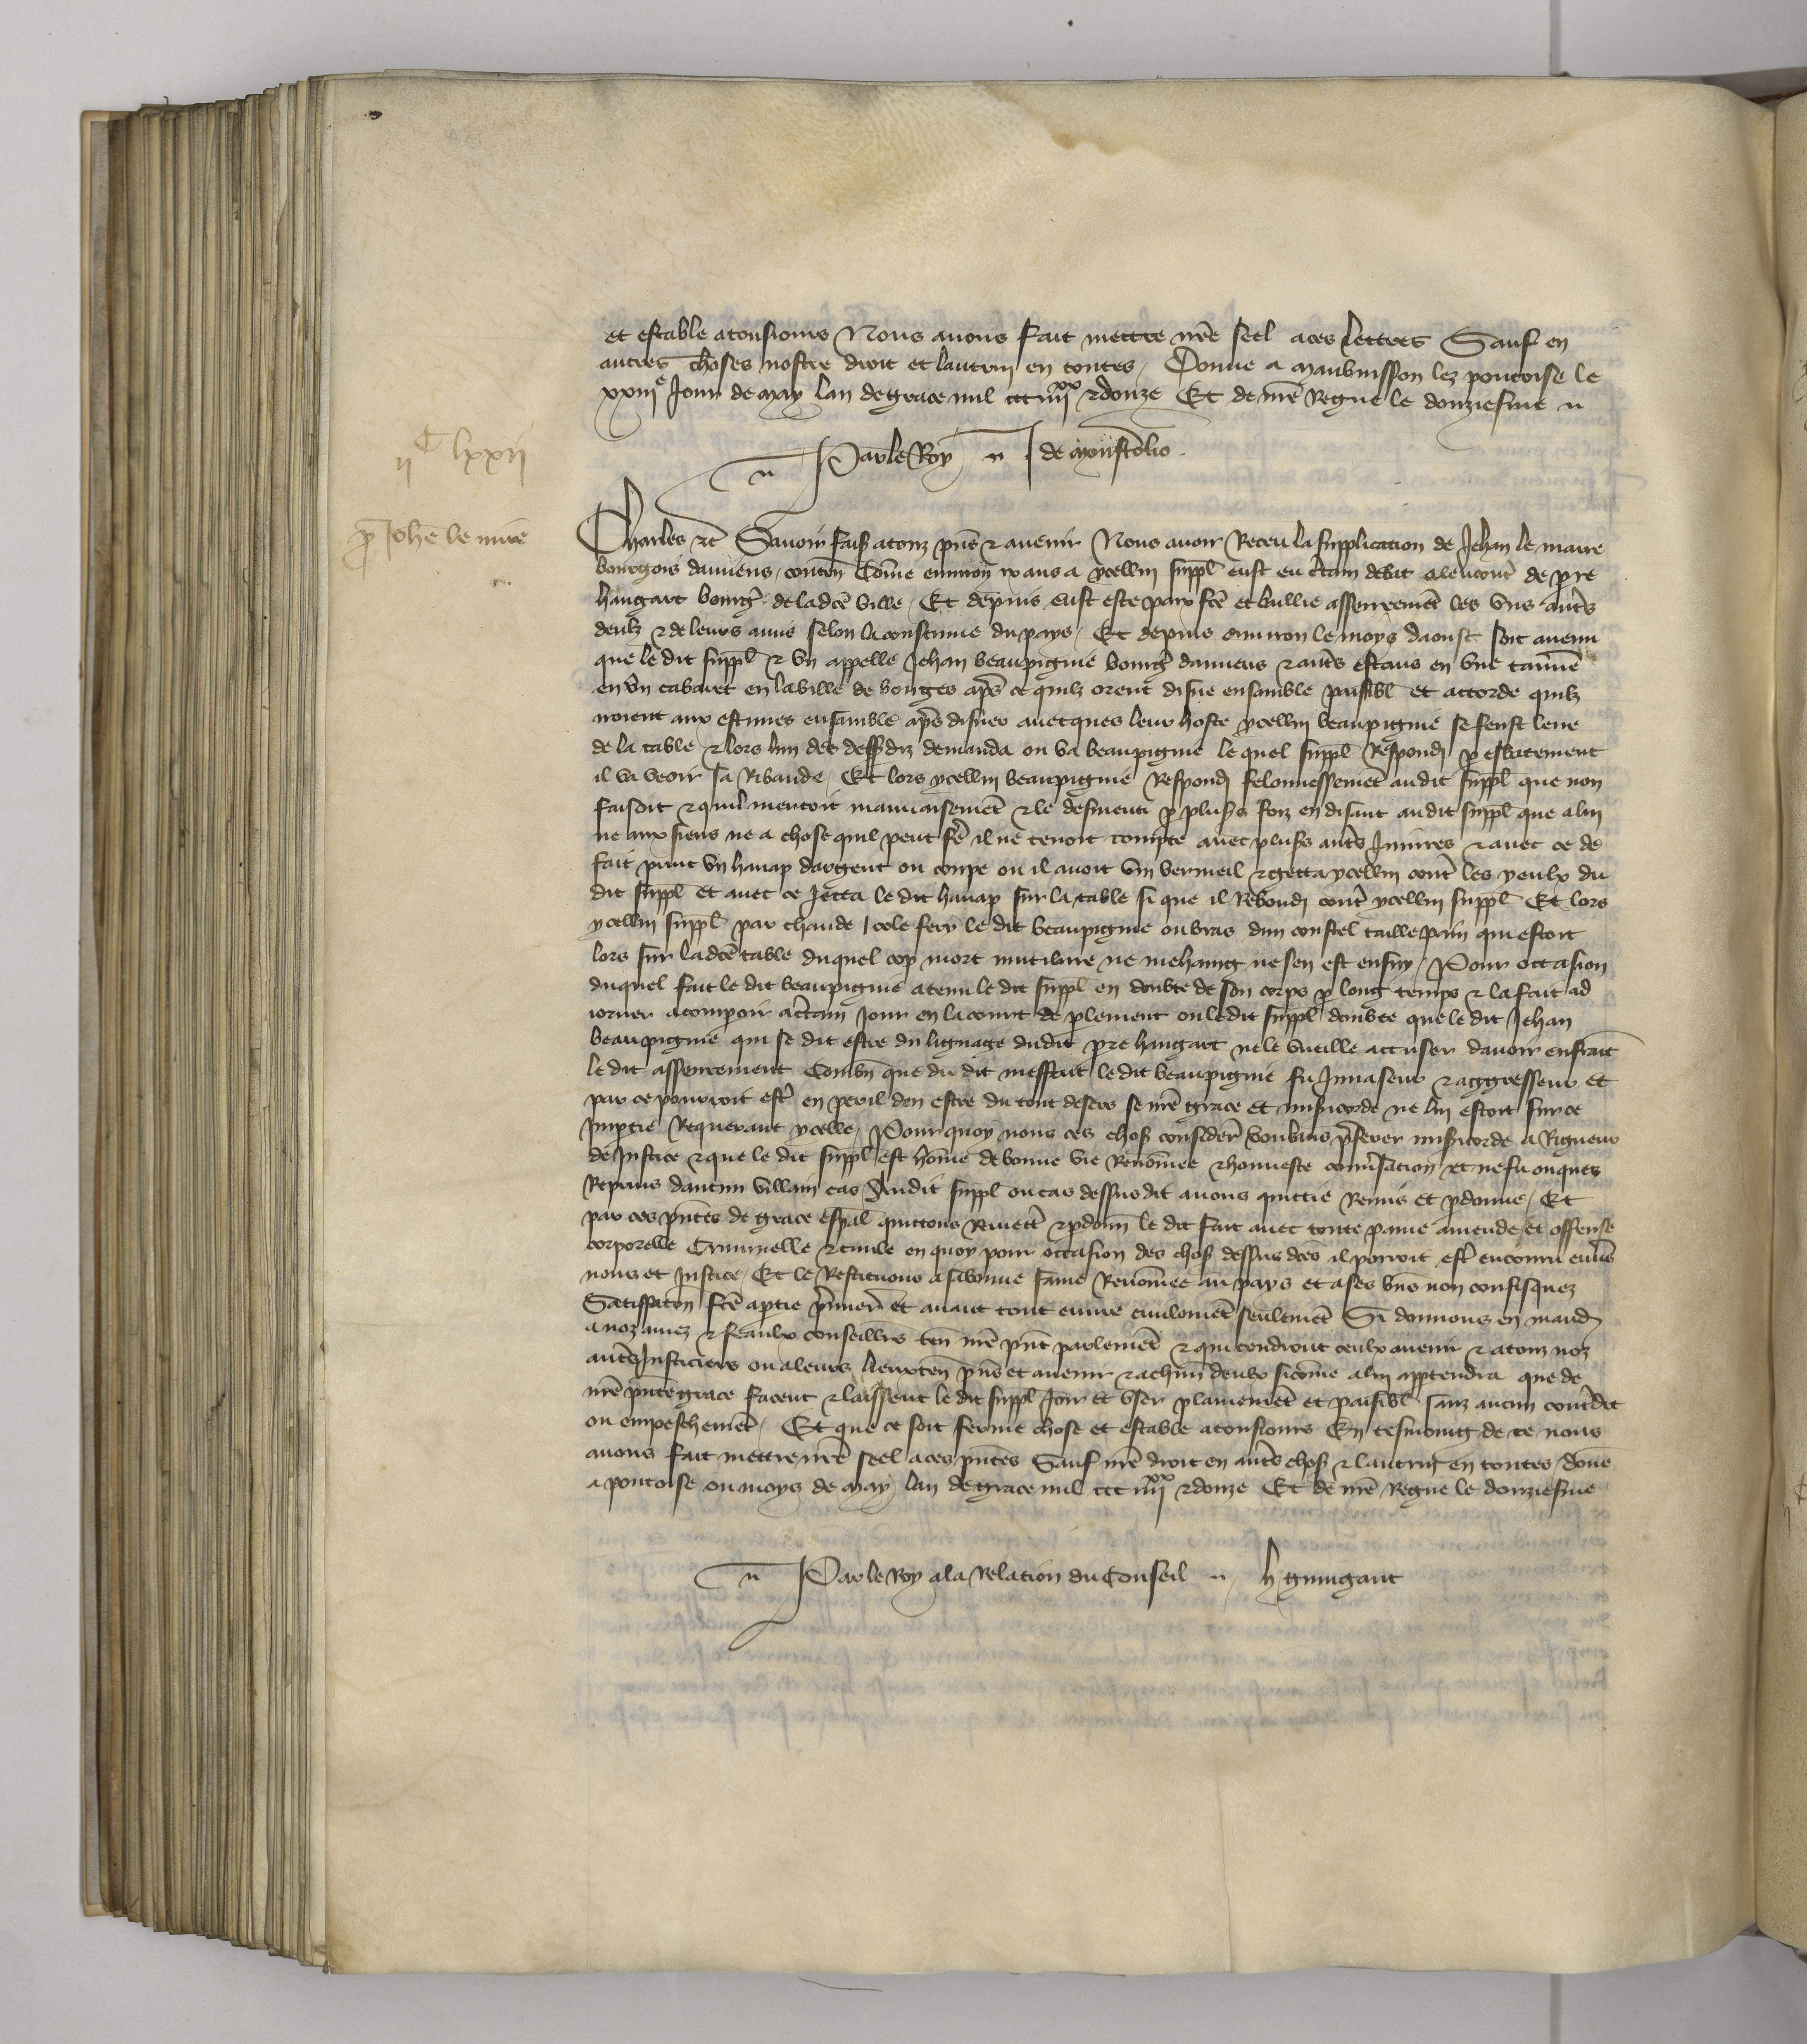 et estable atousiours Nous avons fait mettre nre seel a ces lettres Sauf en
autres choses nostre droit et lautrui en toutes / Donne a Maubuisson lez pontoise le
xxiiiie Jour de May lan de grace mil ccc iiiixx & douze Et de nre Regne le douziesme
Par le Roy J de Monsterolio
iic lxxii
p Johe le maire
Charles &c Savoir fais a touz pns & avenir Nous avoir Receu la supplication de Jehan le maire
bourgois damiens / conten Come environ ix ans a ycellui suppl eust eu ctain debat alencont de pre
hangart bourg de la dce ville / Et depuis eust este paix fce et bullie asseurement les uns auts
deulz & de leurs amis selon la coustume du pays / Et depuis environ le moys daoust soit avenu
que le dit suppl & un appelle Jehan beaupignie bourg damiens & auts estans en une taverne
en un cabaret en la ville de bouges aps ce quilz orent disne ensamble paisibl et accorde quilz
iroient aux estuves ensamble aps disner avecques leur hoste ycellui beaupignie se feust leve
de la table & lors lun des dessdiz demanda ou va beaupignie le quel suppl Respondi p esbatement
il va veoir sa Ribaude / Et lors ycellui beaupignie Respondi felonnessement audit suppl que non
faisoit & quil mentoit mauvaisement & le desmenti p pluss foiz en disant audit suppl que a lui
ne aux siens ne a chose quil peut fe il ne tenoit compte avec pluss auts Injures & avec ce de
fait print un hanap dargent ou coupe ou il avoit vin vermeil & getta ycellui cont les yeulx du
dit suppl et avec ce Jetta le dit hanap sur la table si que il Rebondi cont ycellui suppl Et lors
ycellui suppl par chaude cole feri le dit beaupignie ou bras dun coustel taillepain qui estoit
lors sur la dce table duquel cop mort mutilure ne mehaing ne sen est ensuy / Pour occasion
duquel fait le dit beaupignie a tenu le dit suppl en doubte de son corps p long temps & la fait ad
iorner a compoir a ctain Jour en la court de plement ou le dit suppl doubte que le dit Jehan
beaupignie qui se dit estre du lignage dudit pre hangart ne le vueille accuser davoir enfraint
le dit asseurement Combn que du dit meffait le dit beaupignie fu Invaseur & aggresseur Et
par ce pourroit est en peril den estre du tout desers se nre grace et misicorde ne lui estoit sur ce
Imptie Requerant ycelle / Pour quoy nous ces chos consider voulans pferer misicorde a Rigueur
de Justice & que le dit suppl est home de bonne vie Renomee & honneste conversation et ne fu onques
Repris daucun villain cas Audit suppl ou cas dessusdit avons quittie Remis et pdonne / Et
par ces pntes de grace espal quittons Remett & pdonn le dit fait avec toute paine amende et offense
corporelle Criminelle & civile en quoy pour occasion des chos dessus dces il porroit est encouru envs
nous et Justice / Et le Restituons a sa bonne fame Renomee au pays et a ses bns non confisquez
Satisfaction fce a ptie primer et avant tout euvre civilement seulement Si donnons en mand
a noz amez & feaulx conseillrs ten nre pnt parlement & qui tendront ceulx avenir & a touz noz
auts Justiciers ou a leurs lieuxten pns et avenir & a chun deulx sicome a lui apptendra que de
nre pnte grace facent & laissent le dit suppl Joir et user plainement et paisibl sanz aucun contdit
ou empeschement / Et que ce soit ferme chose et estable a tousiours En tesmoing de ce nous
avons fait mettre nre seel a ces pntes Sauf nre droit en auts chos & lautrui en toutes / done
a pontoise ou moys de May lan de grace mil ccc iiiixx & douze Et de nre Regne le douziesme
Par le Roy a la Relation du Conseil H guingant